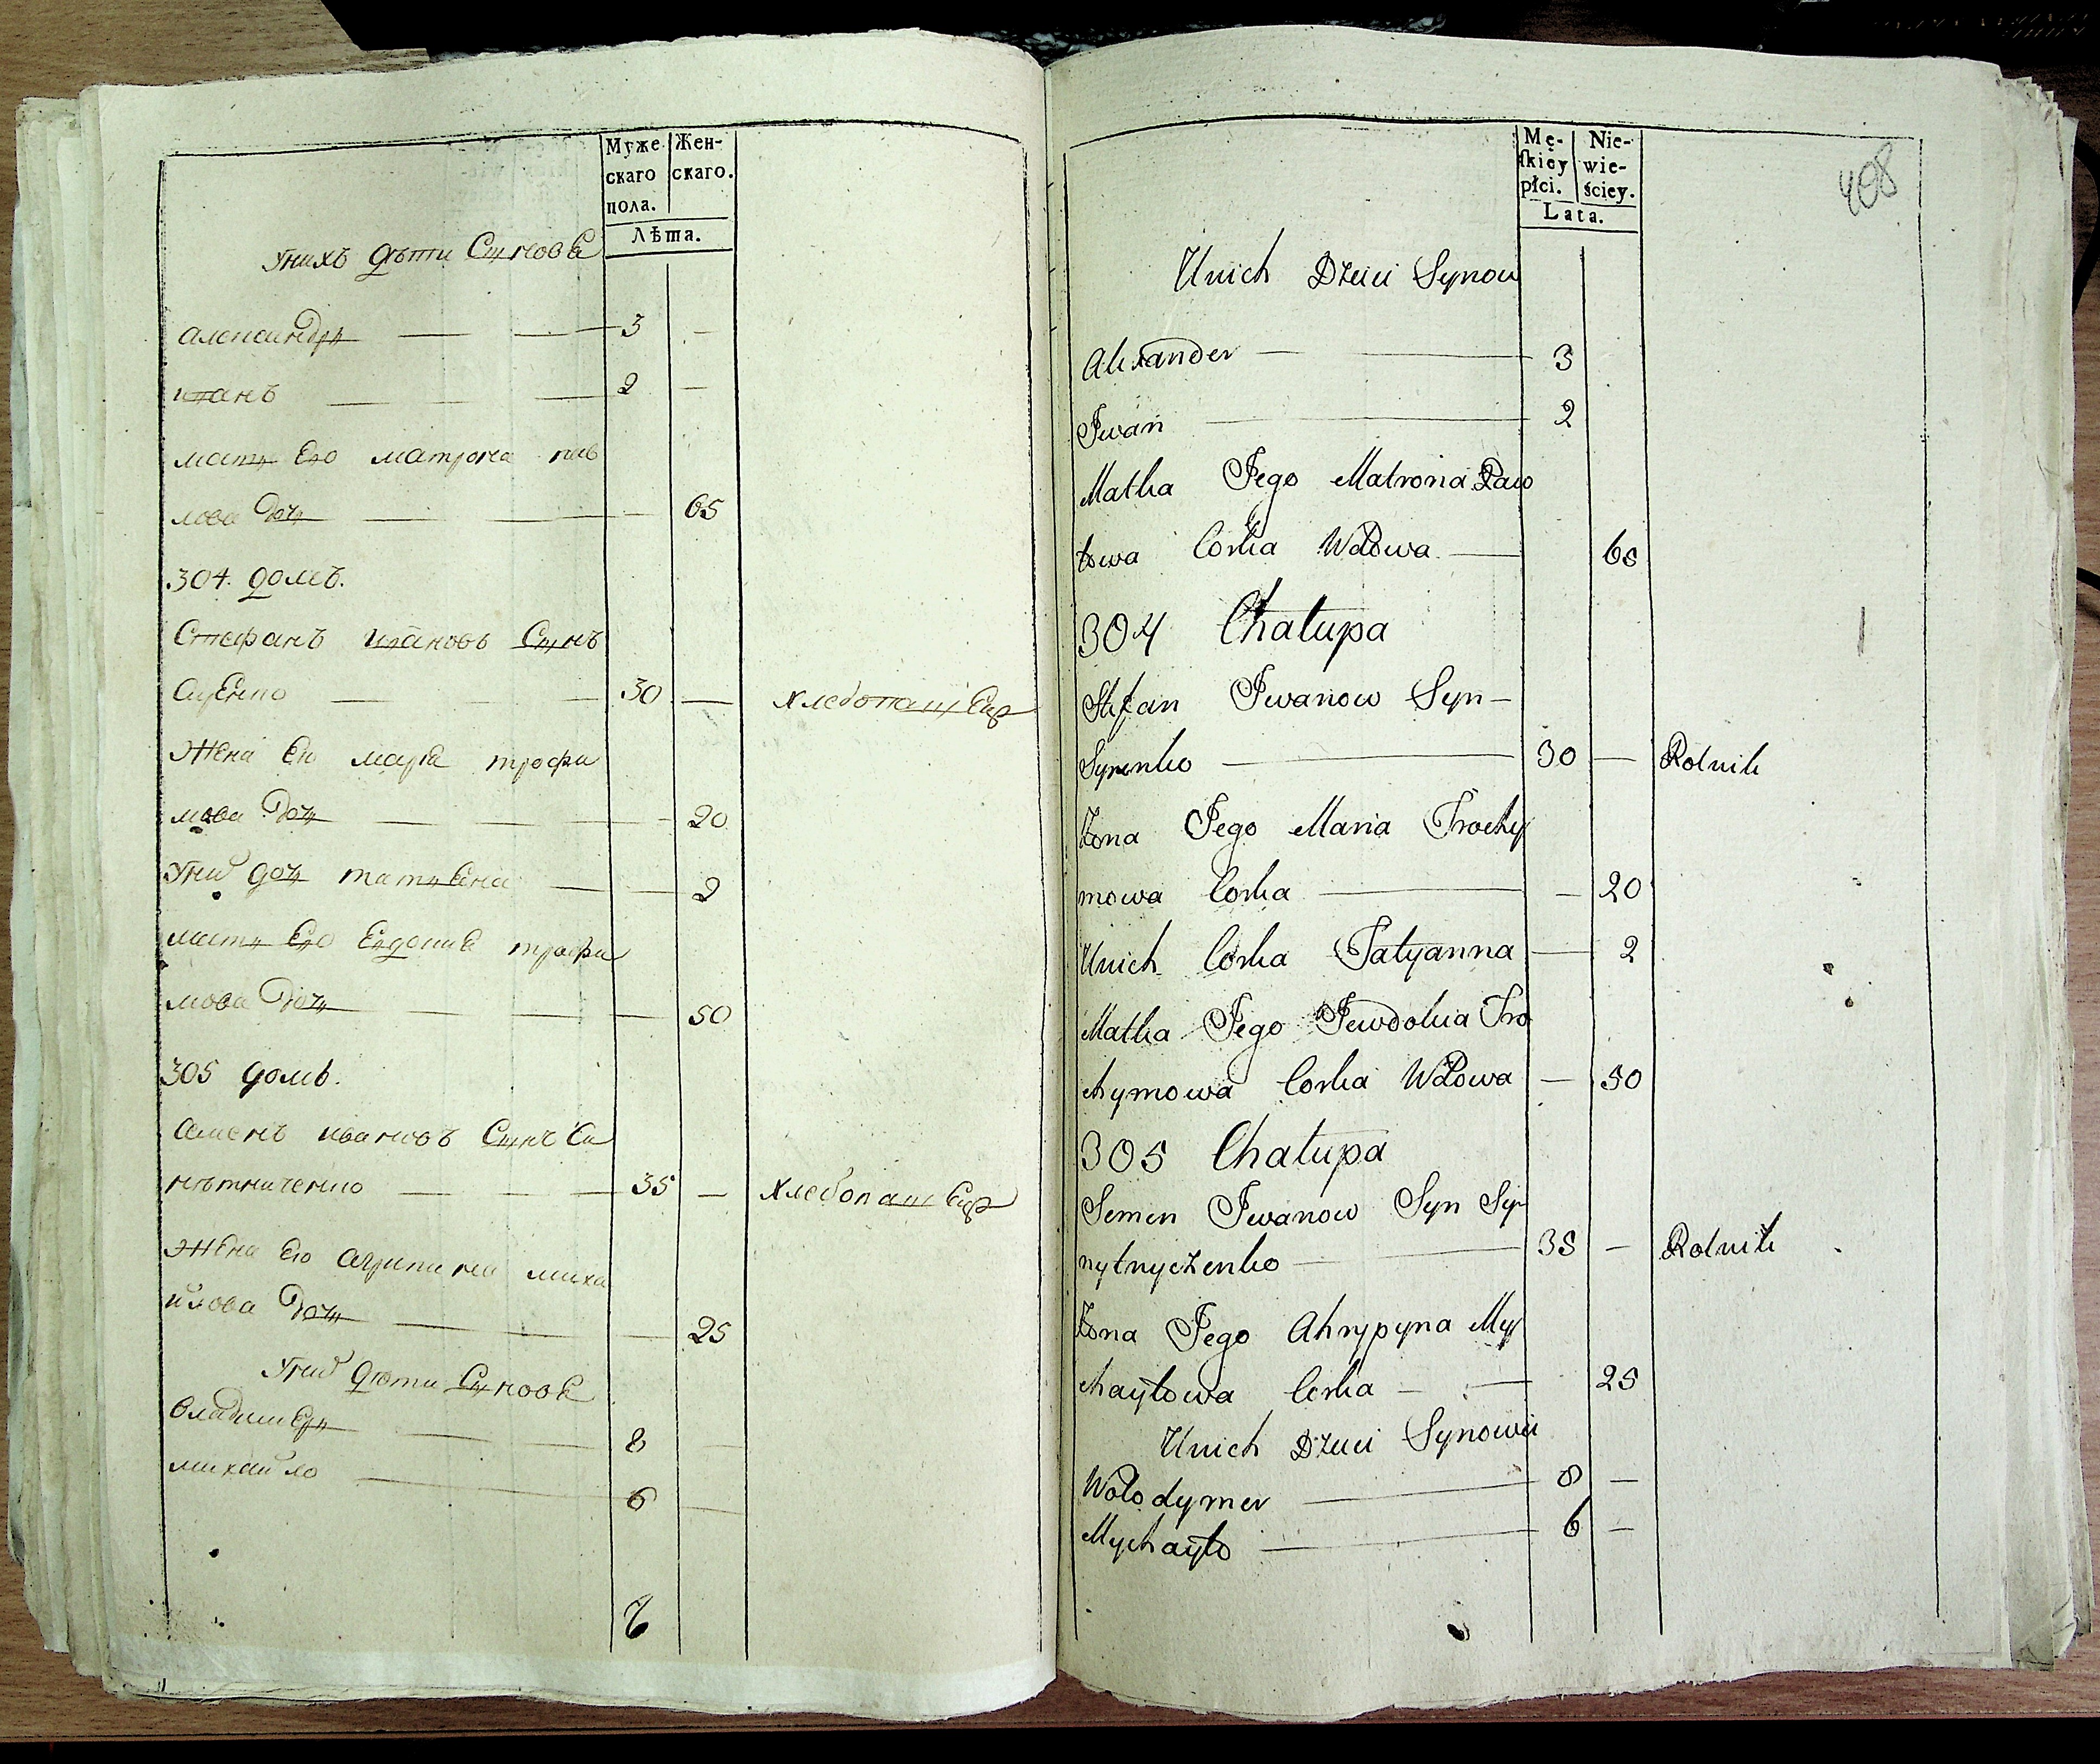 Муже
скаго
пола.
Жен-
скаго.
Лѣта.
Унихъ дѣти Сынове
александръ — — — 3 —
иванъ — — — 2 —
мать Его матрона пав
лова дочь — — — 65
304. домъ.
Стефанъ ивановъ Сынъ
Сиренко — — — 30 — хлебопашецъ
Жена Ею марiя трофи
мова дочь — — — 20
Уних дочь татьяна — — 2
мать Его Евдокия трофи
мова дочь — — — 50
305 домъ.
Семенъ ивановъ Сынъ Си
нѣтниченко — — — 35 — Хлебопашецъ
Жена Ею агрипина миха
йлова дочь — — 25
Уних дѣти Сынове
владимеръ — — 8 —
михайло — 6 —
408
Mę-
skiey
płci.
Nie-
wie-
ściey.
Lata.
Unich Dzieci Synow
Alexander — — 3
Jwan — 2
Matka Jego Matrona Paw
łowa Corka Wdowa — 65
304 Chałupa
Stefan Jwanow Syn —
Syrenko — 30 — Rolnik
Żona Jego Maria Trochy
mowa Corka — — 20
Unich Corka Tatyanna — 2
Matka Jego Jewdokia Tro
chymowa Corka Wdowa — 50
305 Chałupa
Semen Jwanow Syn Sy
nytnyczenko — 35 — Rolnik
Żona Jego Ahrypyna My
chayłowa Corka — — 25
Unich Dzieci Synowie
Wołodymer — 8 —
Mychayło — 6 —